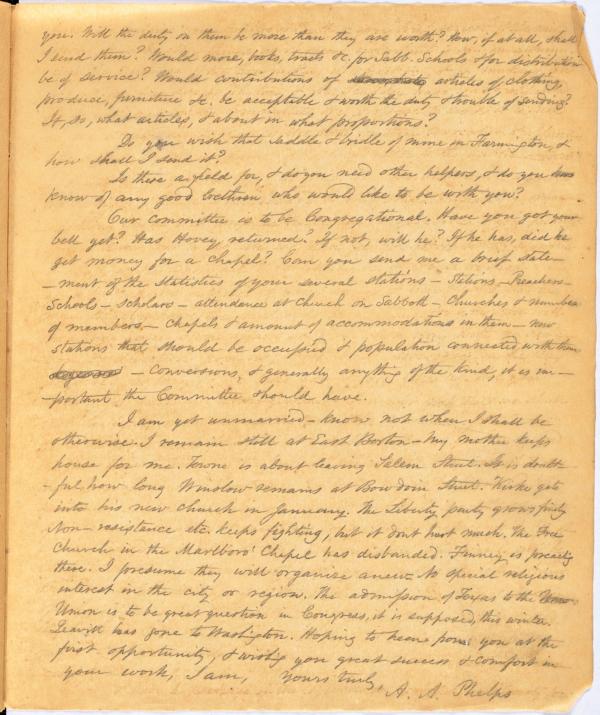 you. Will the duty on them be more than they are worth? How, if at all, shall
I send them? Would more, books, tracts &c. for Sabb. Schools & for distribution
be of service? Would contributions of articles of clothing,
produce, furniture &c. be acceptable & worth the duty & trouble of sending?
If, so, what articles, & about in what proportions?
Do you wish that saddle & bridle of mine in Farmington, &
how shall I send it?
Is there a field for, & do you need other helpers, & do you
know of any good brethren, who would like to be with you?
Our committee is to be Congregational. Have you got your
bell yet? Has Hovey, returned? If not, will he? If he has, did he
get money for a chapel? Can you send me a brief state-
-ment of the Statistics of your several stations - Stations - Preachers -
Schools - scholars - attendance at church on Sabbath - Churches & number
of members - Chapels & amount of accommodations in them - new
stations that should be occupied & population connected with them
- Conversions, & generally anything of the kind, it is im-
-portant the Committee should have.
I am yet unmarried - know not when I shall be
otherwise. I remain still at East Boston - My mother keeps
house for me. Towne is about leaving Salem Street. It is doubt-
-ful how long Winslow remains at Bowdoin Street. Kirke gets
into his new church in January. The Liberty party grows finely
Non-resistance etc. keeps fighting, but it dont hurt much. The Free
Church in the Marlboro' Chapel has disbanded. Finney is preaching
there. I presume they will organise anew. No special religious
interest in the city or region. The admission of Texas to the
Union is to be great question in Congress, it is supposed, this winter.
Leavitt has gone to Washington. Hoping to hear from you at the
first opportunity, & wishing you great success & comfort in
your work, I am, yours truly,
A. A. Phelps